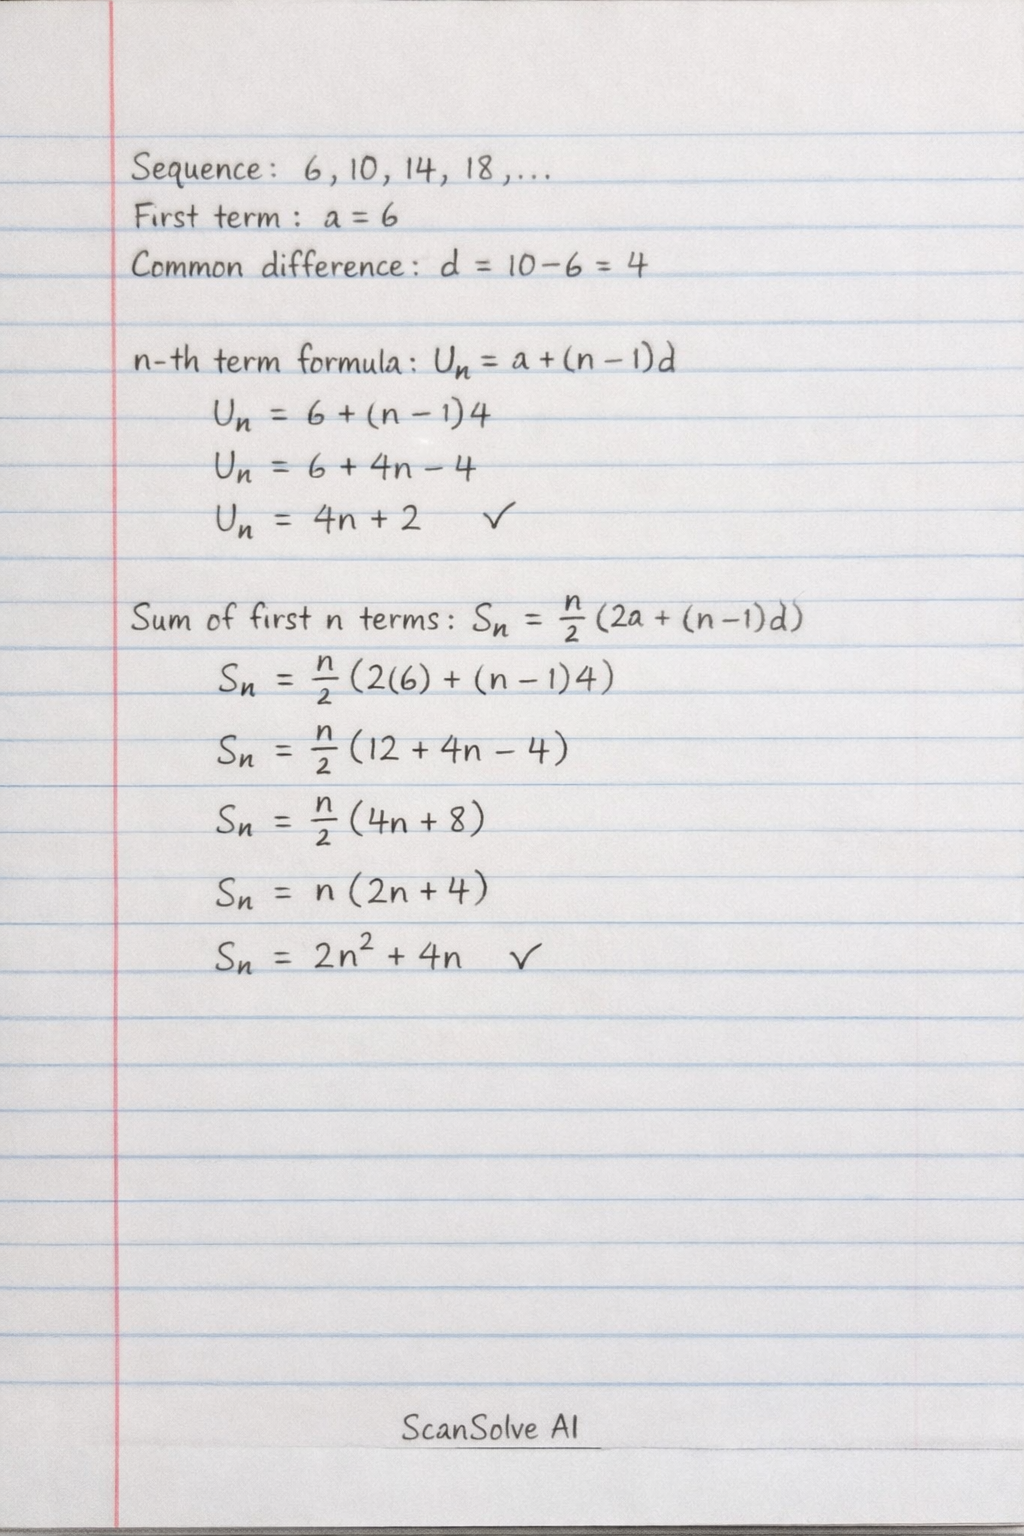 Sequence: 6, 10, 14, 18,...
First term: a = 6
Common difference: d = 10-6 = 4
n-th term formula: Uₙ = a + (n - 1)d
Uₙ = 6 + (n - 1)4
Uₙ = 6 + 4n - 4
Uₙ = 4n + 2 ✓
Sum of first n terms: Sₙ = n/2 (2a + (n-1)d)
Sₙ = n/2 (2(6) + (n - 1)4)
Sₙ = n/2 (12 + 4n - 4)
Sₙ = n/2 (4n + 8)
Sₙ = n (2n + 4)
Sₙ = 2n² + 4n ✓
ScanSolve AI